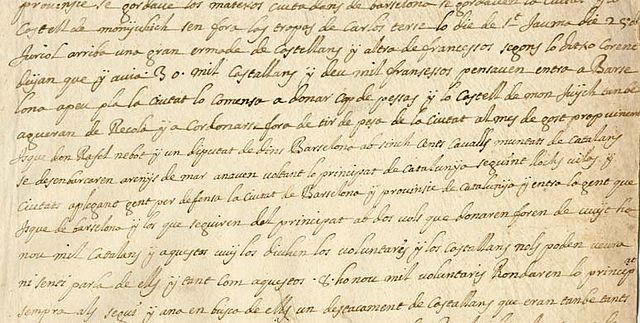 provensie se gordave los matexos ciutedens de barselona se gordaven la ciutat y
Costell de monjubich sen fora las tropas de Carlos terse lo die de st Jaume die 25
Juriol arriba una gran ermade de Castellans y altra de francessos segons lo ditxo Corenel
deyan que y avia 30 mil Castallans y deu mil fransessos pensaven entra a Barse
lona apeu pla la ciutat lo comensa a donar cop de pessas y lo Castell de mon Juych tanbe
agueran de Recola y a Cordonarse fora de tir de pesa de la Ciutat al mes de gost prop vinent
isque don Rafel nebot y un diputat de dins Barselona ab sinch Cents Cavalls muntats de Catalans
se desenbarcaren arenys de mar anaven voltant lo principat de Catalunija seguint lochs vilas y
Ciutats aplegant gent per defensa la Ciutat de Barselona y provinsie de Catalunija y entra la gent que
isque de barselona y los que seguiren del principat ab dos vols que donaren foren de vuyt ho
nou mil Catalans y aquestos vuy los diuhen los voluntaris y los Castallans nols poden veura
ni senti parla de ells y tant com aquestos 8 ho nou mil voluntares Rondaren lo principat
sempra als segui y ana en busca de ells un destacament de Castallans que eran tanbe tants